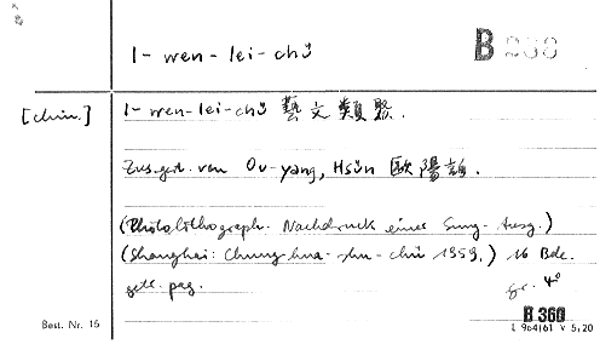 I- wen- lei- chü B 360
[chin.] I- wen-lei-chü 藝文類聚.
Zus.gest. von Ou-yang, Hsün 歐陽詢.
(Photolithograph. Nachdruck einer Sung- Ausg.)
(Shanghai: Chung-hua-shu-chü 1959.) 16 Bde.
getr. pag. gr. 4°
B 360
Best. Nr. 15 L 964/61 V 5,20